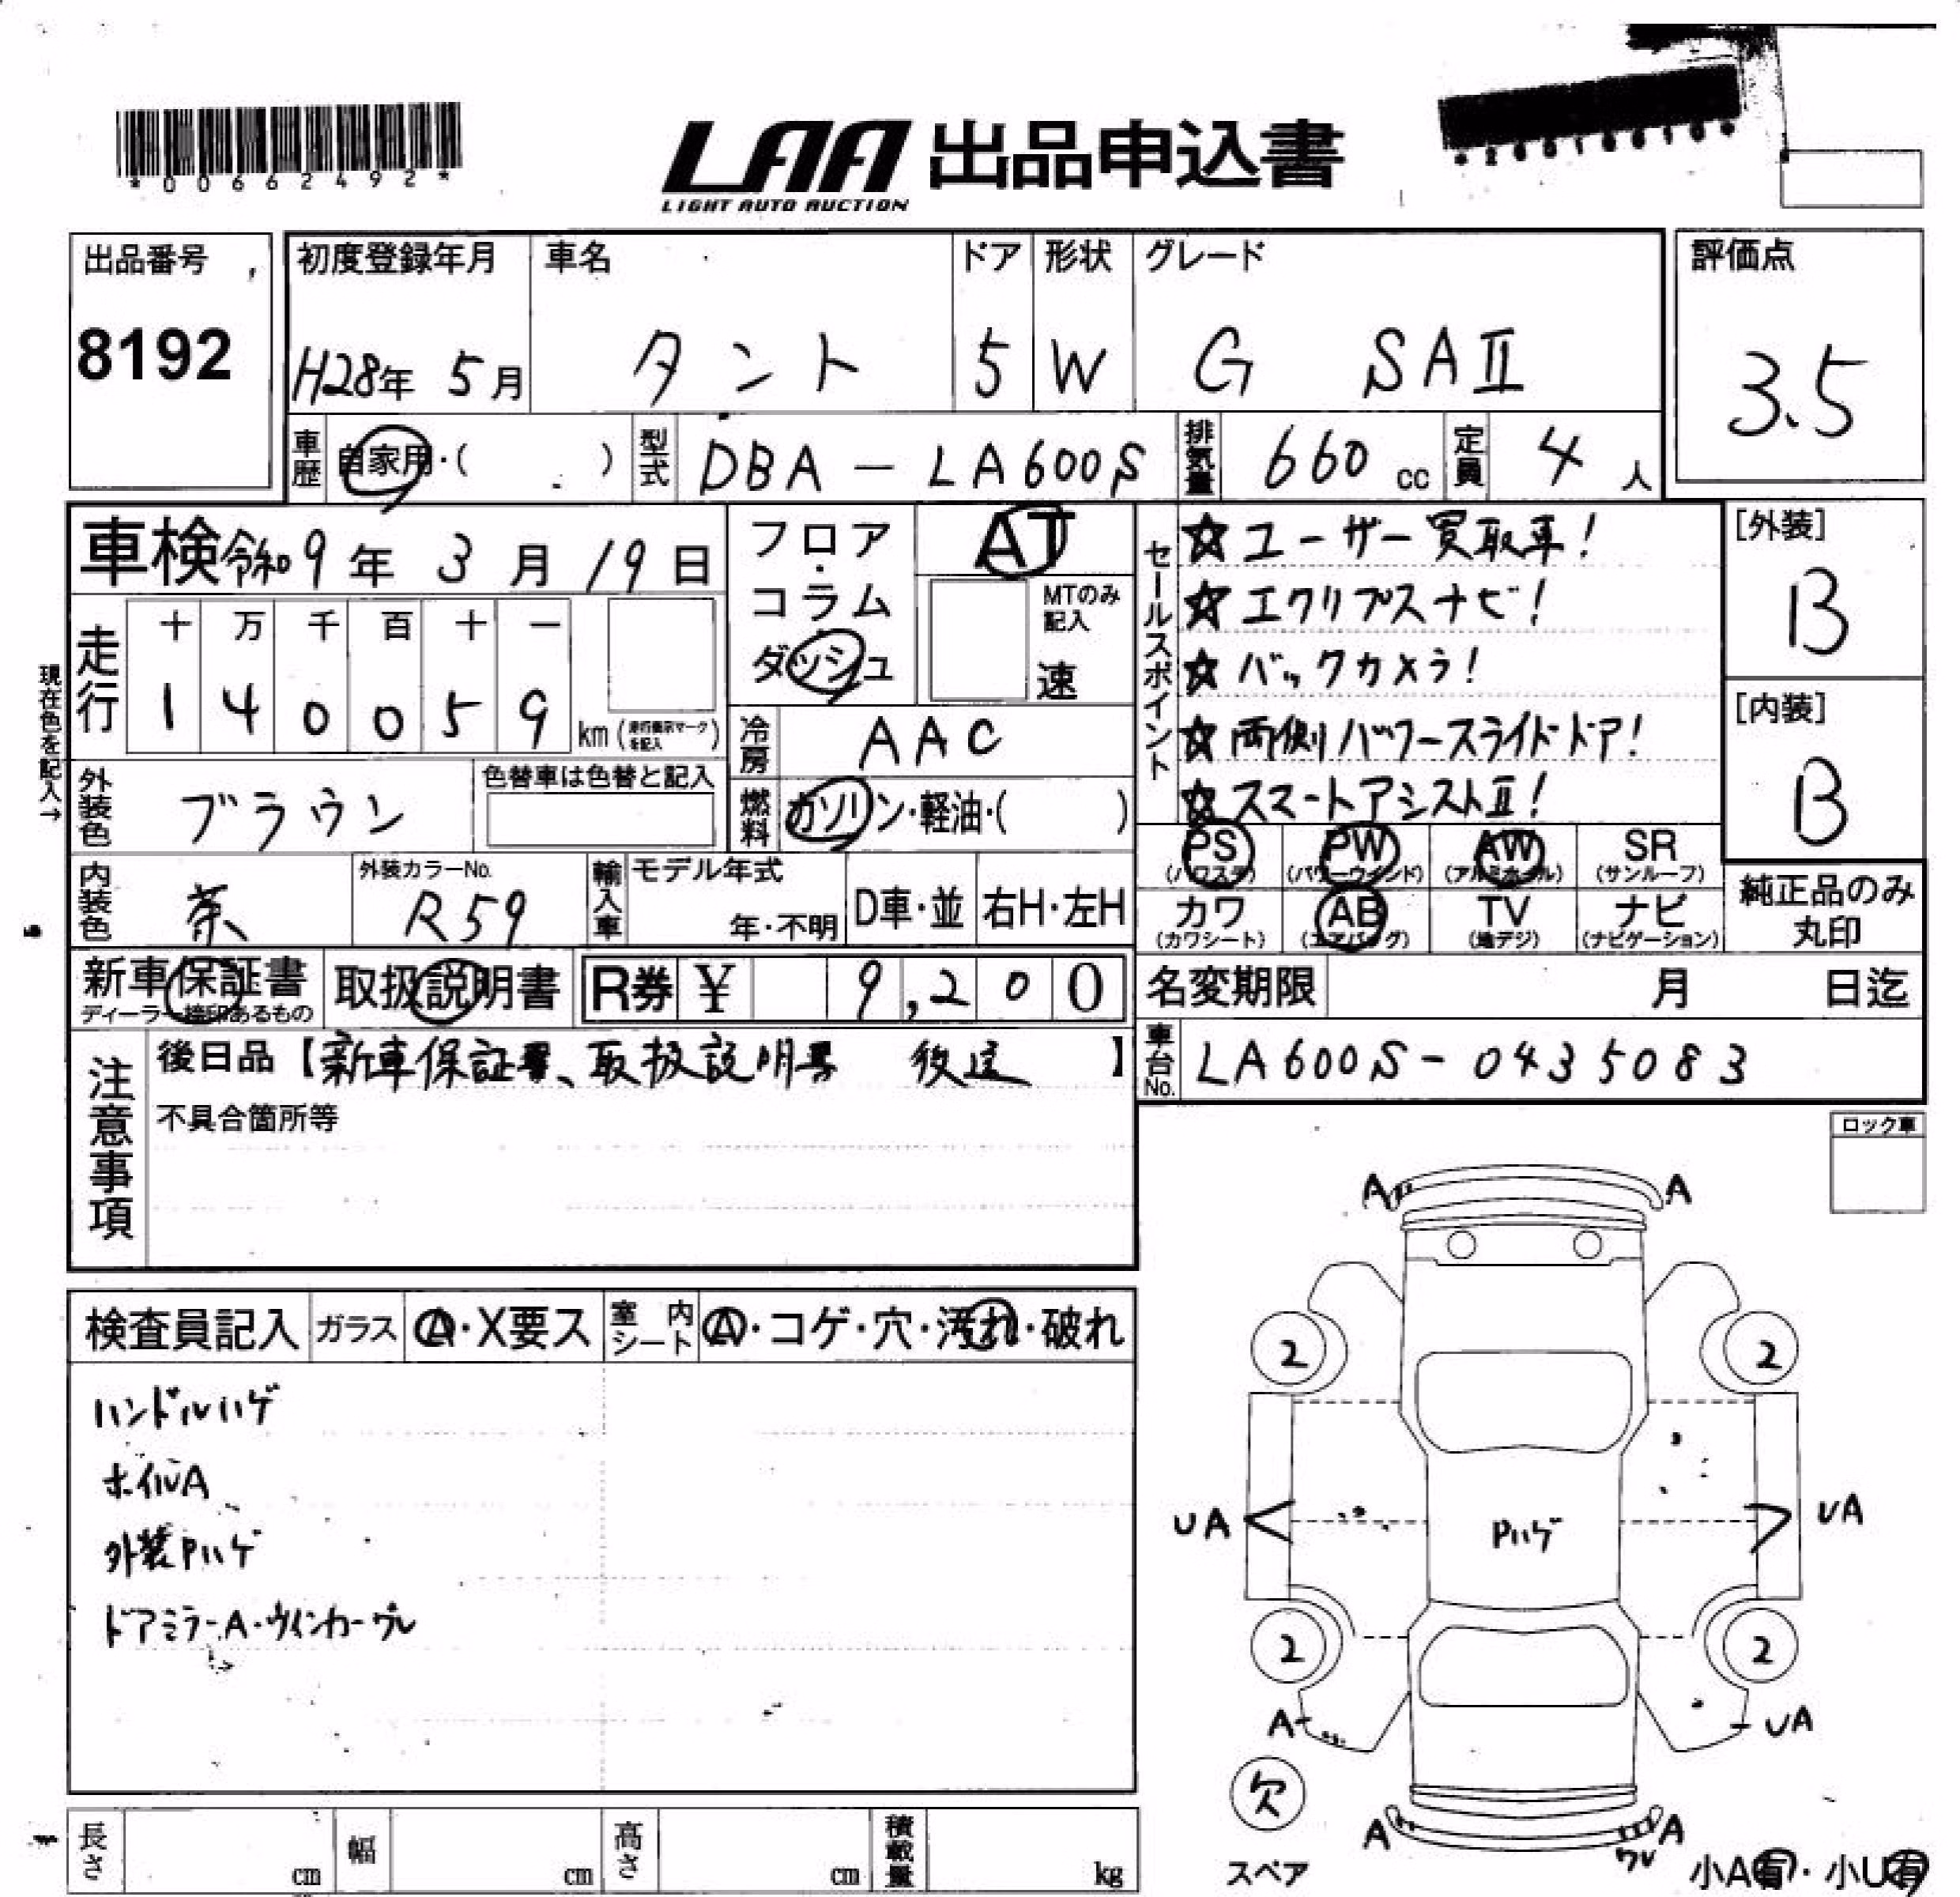 *00662492*
LAA 出品申込書
LIGHT AUTO AUCTION
出品番号
8192
初度登録年月
H28年 5月
車名
タント
ドア
5
形状
W
グレード
G SAⅡ
評価点
3.5
車歴
自家用・( )
型式
DBA-LA600S
排気量
660 cc
定員
4 人
車検 令和9年 3月 19日
フロア・コラム
ダッシュ
AT
MTのみ記入
速
セールスポイント
☆ユーザー買取車!
☆エクリプスナビ!
☆バックカメラ!
☆両側パワースライドドア!
☆スマートアシストⅡ!
[外装]
B
[内装]
B
現在色を記入→
走行
十 万 千 百 十 一
1 4 0 0 5 9
km(走行表示マークを記入)
冷房
AAC
外装色
ブラウン
色替車は色替と記入
燃料
ガソリン・軽油・( )
PS (パワステ)
PW (パワーウインド)
AW (アルミホイル)
SR (サンルーフ)
カワ (カワシート)
AB (エアバッグ)
TV (地デジ)
ナビ (ナビゲーション)
純正品のみ
丸印
内装色
茶
外装カラーNo.
R59
輸入車
モデル年式
年・不明
D車・並
右H・左H
新車保証書
ディーラー捺印あるもの
取扱説明書
R券 ¥ 9,200
名変期限 月 日迄
注意事項
後日品【新車保証書、取扱説明書 後送 】
不具合箇所等
車台No.
LA600S-0435083
ロック車
検査員記入
ガラス
A・X要ス
室内シート
A・コゲ・穴・汚れ・破れ
ハンドルハゲ
ホイルA
外装Pハゲ
ドアミラーA・ウインカーワレ
A A
2 2
UA Pハゲ UA
2 2
A UA
欠
スペア
A A
ワレ
小A有・小U有
長さ cm
幅 cm
高さ cm
積載量 kg